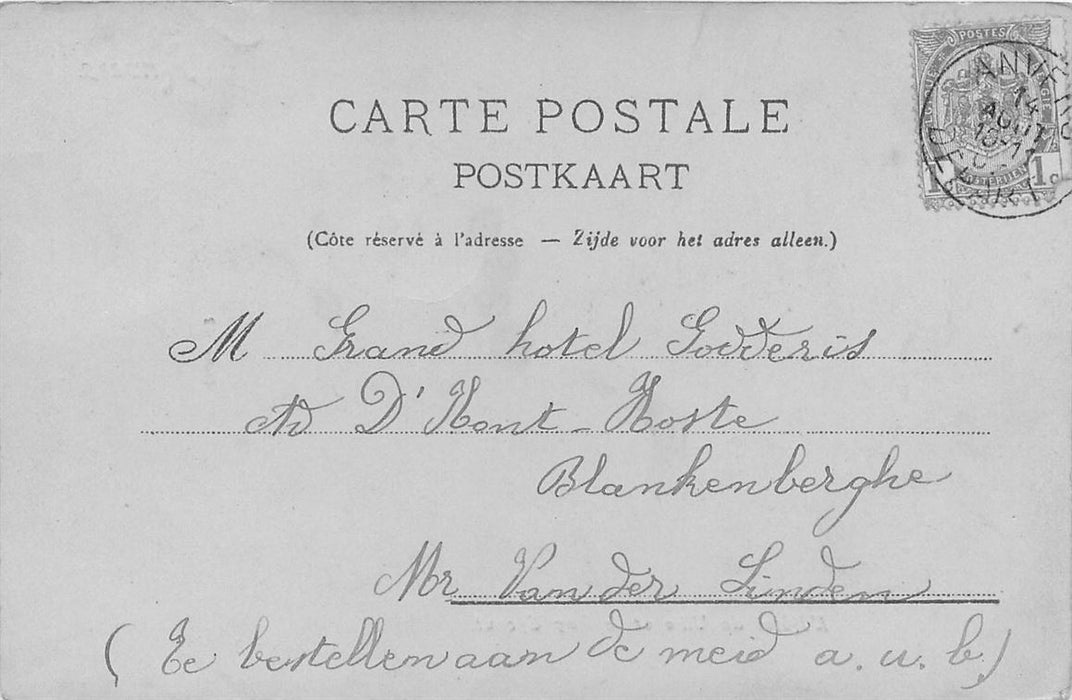 CARTE POSTALE
POSTES
ANVERS
14
AOUT
10-11
DEPART
1 1c
POSTKAART
(Côte réservé à l'adresse — Zijde voor het adres alleen.)
M Grand hotel Godderis
Ad D'Hont-Hoste
Blankenberghe
Mr Van der Linden
(Te bestellen aan de meid a.u.b.)